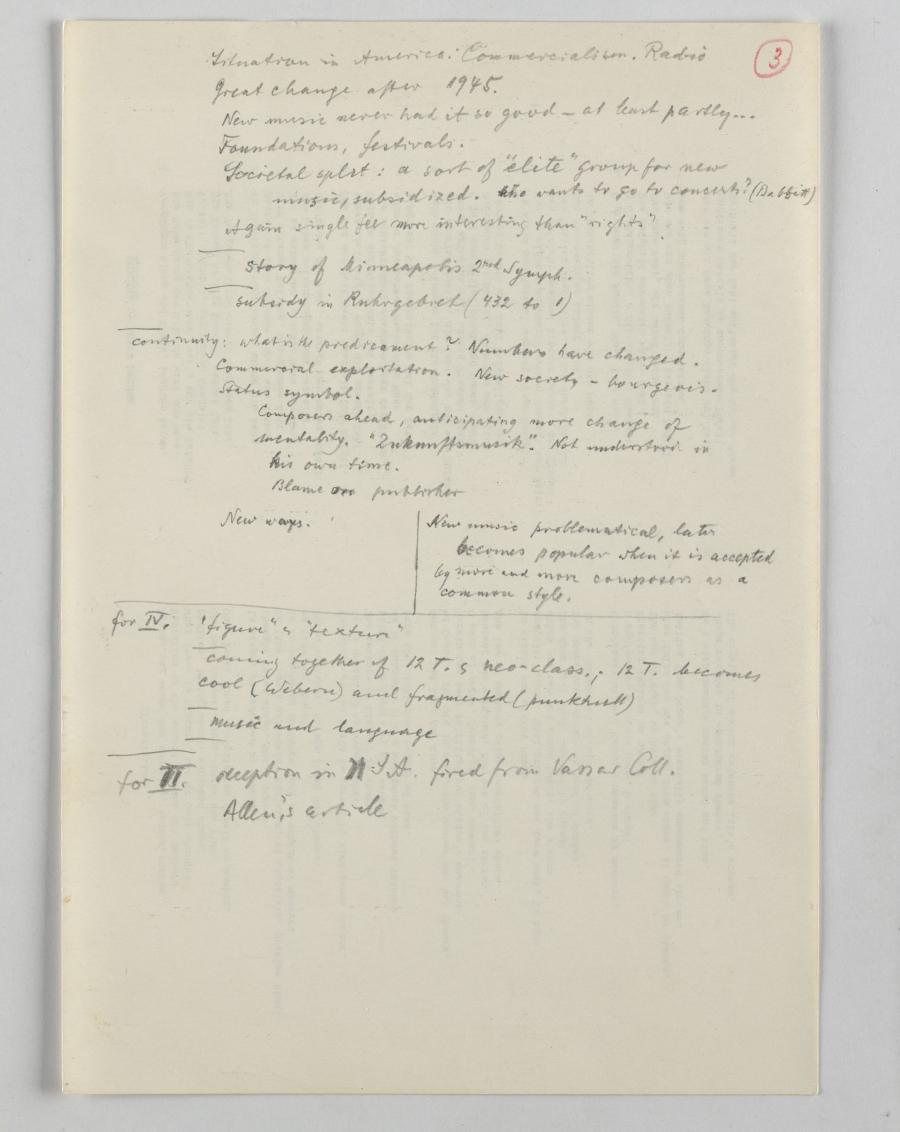 3
Situation in America: Commercialism. Radio
Great change after 1945.
New music never had it so good – at least partly...
Foundations, festivals.
Societal split: a sort of "élite" group for new
music, subsidized. Who wants to go to concerts? (Babbitt)
Again single fee more interesting than "rights".
Story of Minneapolis 2nd Symph.
subsidy in Ruhrgebiet (432 to 1)
continuity: what is the predicament? Numbers have changed.
Commercial exploitation. New society – bourgeois.
Status symbol.
Composers ahead, anticipating more change of
mentality. "Zukunftsmusik". Not understood in
his own time.
Blame on publisher
New ways.
New music problematical, later
becomes popular when it is accepted
by more and more composers as a
common style.
for IV. "figure" & "texture"
coming together of 12 T. & neo-class.; 12 T. becomes
cool (Webern) and fragmented (punktuell)
music and language
for II. reception in U.S.A. fired from Vassar Coll.
Allen's article